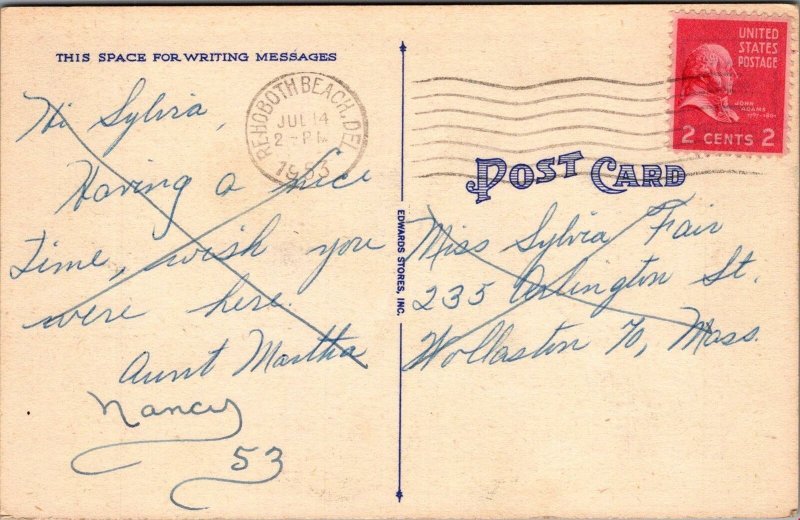 THIS SPACE FOR WRITING MESSAGES
Hi Sylvia,
Having a nice
time, wish you
were here.
Aunt Martha
Nancy
53
REHOBOTH BEACH, DEL.
JUL 14
2 - PM
1953
EDWARDS STORES, INC.
UNITED
STATES
POSTAGE
JOHN
ADAMS
1797-1801
2 CENTS 2
POST CARD
Miss Sylvia Fair
235 Arlington St.
Wollaston 70, Mass.